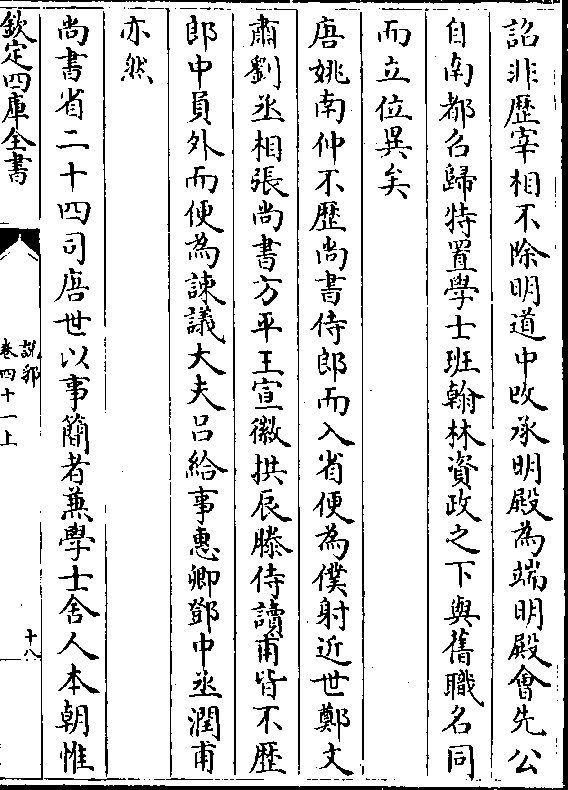 詔非歴宰相不除明道中改承明殿為端明殿會先公
自南都名歸特置學士班翰林資政之下與舊職名同
而立位異矣
唐姚南仲不歴尚書侍郎而入省便為僕射近世鄭文
肅劉丞相張尚書方平王宣徽拱辰滕侍讀甫皆不歴
郎中員外而便為諫議大夫吕給事惠卿鄧中丞潤甫
亦然
尚書省二十四司唐世以事簡者兼學士舍人本朝惟
欽定四庫全書
說郛
卷四十一上
十八